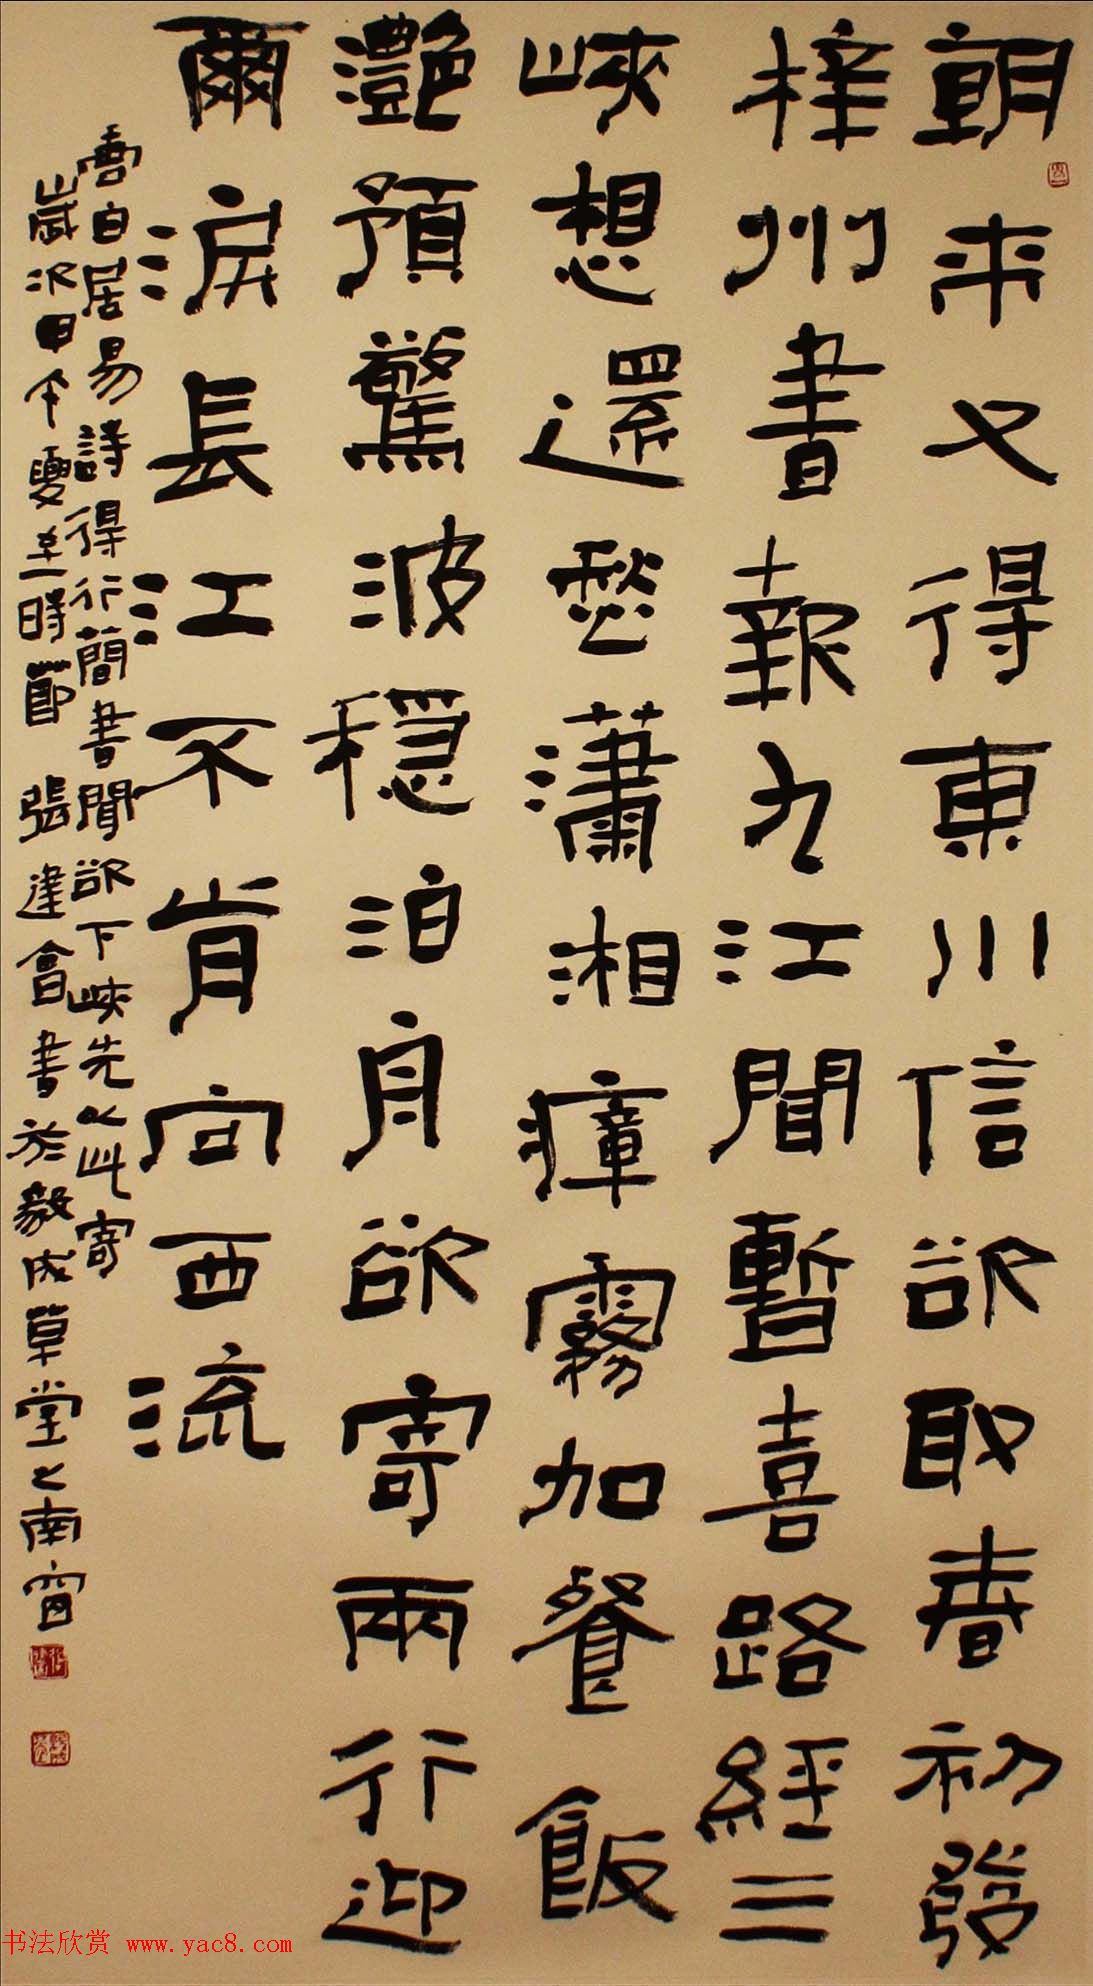 朝來又得東川信欲取春初發
梓州書報九江聞暫喜路經三
峽想還愁瀟湘瘴霧加餐飯
灩預驚波穩泊舟欲寄兩行迎
爾淚長江不肯向西流
右白居易詩得行簡書聞欲下峽先以此寄
歲次甲午夏至時節 張建會書於毅成草堂之南窗
书法欣赏 www.yac8.com